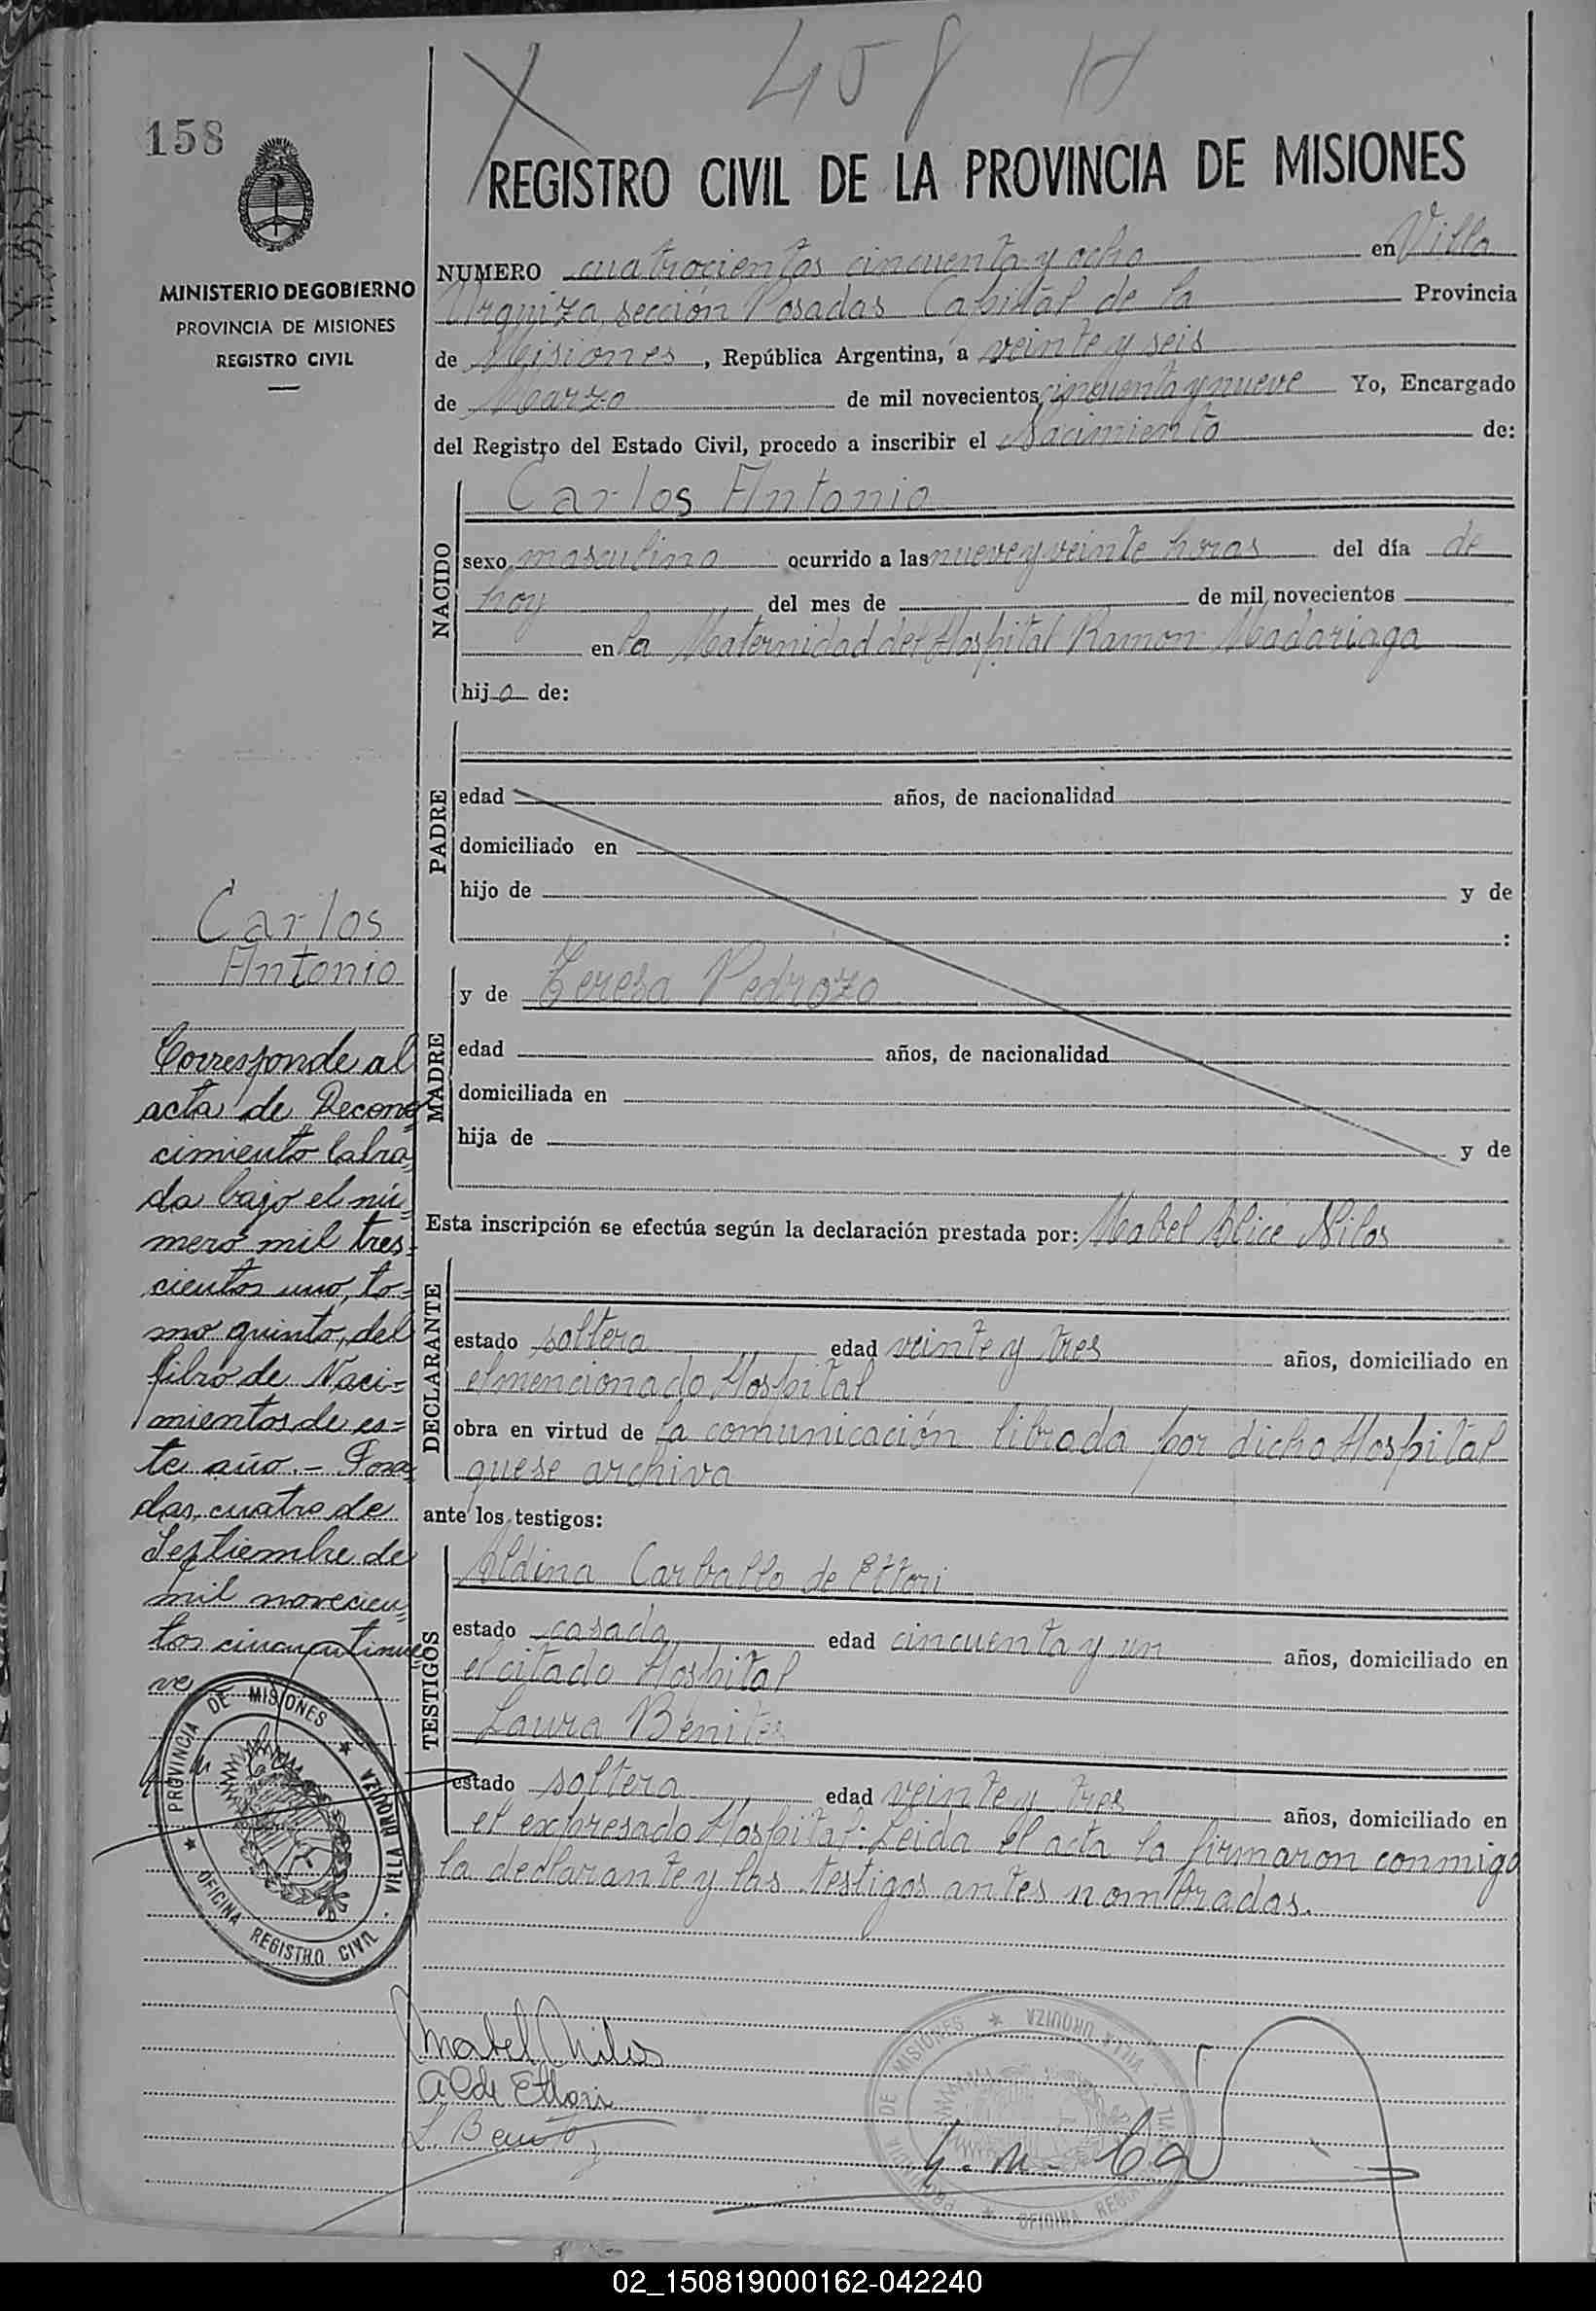 458
158
REGISTRO CIVIL DE LA PROVINCIA DE MISIONES
MINISTERIO DE GOBIERNO
PROVINCIA DE MISIONES
REGISTRO CIVIL
NUMERO cuatrocientos cincuenta y ocho en Villa
Urquiza, sección Posadas Capital de la Provincia
de Misiones, República Argentina, a veinte y seis
de Marzo de mil novecientos cincuenta y nueve Yo, Encargado
del Registro del Estado Civil, procedo a inscribir el Nacimiento de:
NACIDO
Carlos Antonio
sexo masculino ocurrido a las nueve y veinte horas del día de
hoy del mes de de mil novecientos
en la Maternidad del Hospital Ramon Madariaga
hijo de:
PADRE
edad años, de nacionalidad
domiciliado en
hijo de y de
:
MADRE
y de Teresa Pedrozo
edad años, de nacionalidad
domiciliada en
hija de y de
Esta inscripción se efectúa según la declaración prestada por: Mabel Alice Nilos
DECLARANTE
estado soltera edad veinte y tres años, domiciliado en
el mencionado Hospital
obra en virtud de la comunicación librada por dicho Hospital
que se archiva
ante los testigos:
TESTIGOS
Aldina Carballo de Ettori
estado casada edad cincuenta y un años, domiciliado en
el citado Hospital
Laura Benites
estado soltera edad veinte y tres años, domiciliado en
el expresado Hospital: Leida el acta la firmaron conmigo
la declarante y las testigos antes nombradas.
Carlos
Antonio
Corresponde al
acta de Recono=
cimiento labra=
da bajo el nú=
mero mil tres=
cientos uno, to=
mo quinto, del
libro de Naci=
mientos de es=
te año.- Posa=
das, cuatro de
Septiembre de
mil novecien=
tos cincuentinue=
ve
PROVINCIA DE MISIONES * VILLA URQUIZA * OFICINA REGISTRO CIVIL
Mabel Nilos
A C de Ettori
L. Benitez
PROVINCIA DE MISIONES * VILLA URQUIZA * OFICINA REGISTRO CIVIL
02_150819000162-042240